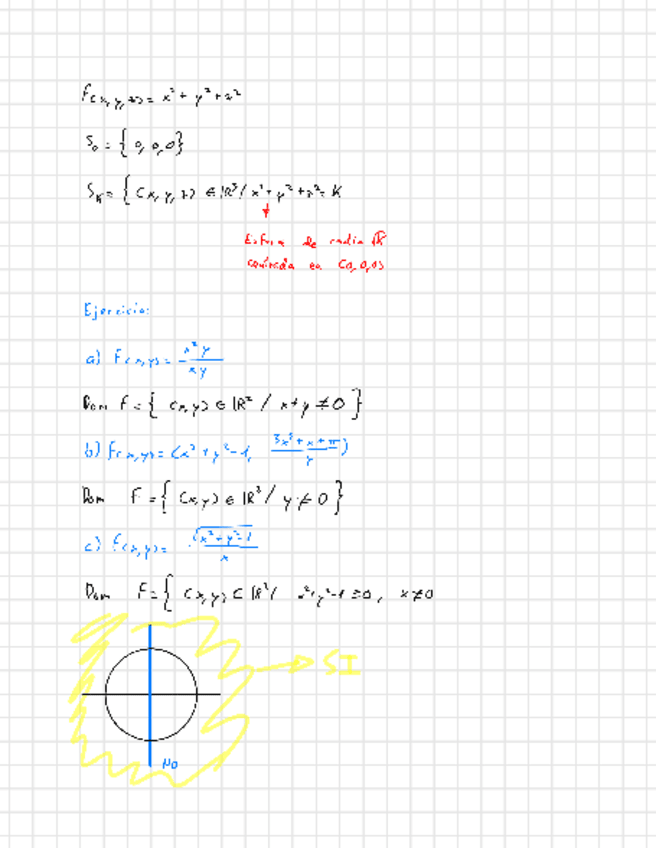 F(x,y,z) = x² + y² + z²
S₀ = { 0, 0, 0 }
Sₖ = { (x, y, z) ∈ ℝ³ / x² + y² + z² = K
Esfera de radio √K
centrada en (0,0,0)
Ejercicio:
a) F(x,y) = x² y / xy
Dom F = { (x,y) ∈ ℝ² / x+y ≠ 0 }
b) F(x,y) = (x² + y² - 1, (3x² + x + π) / y)
Dom F = { (x,y) ∈ ℝ³ / y ≠ 0 }
c) f(x,y) = √(x² + y² - 1) / x
Dom F = { (x,y) ⊂ ℝ² / x²+y²-1 ≥ 0, x ≠ 0
SI
NO